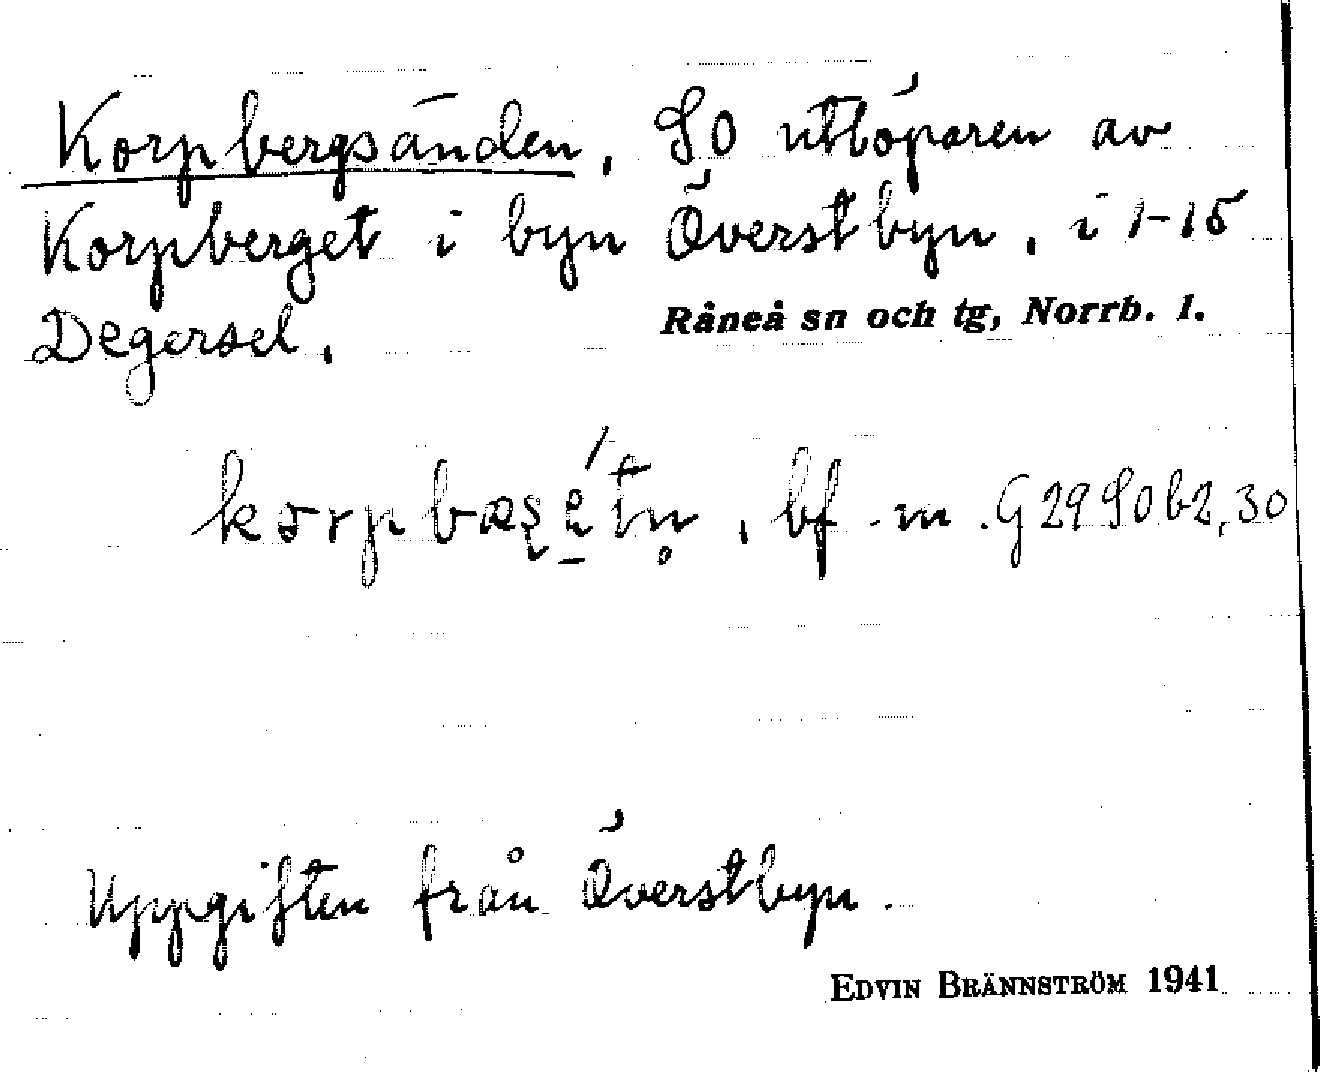 Korpbergsänden, SO utlöparen av
Korpberget i byn Överstbyn, i 1-15
Degersel.
Råneå sn och tg, Norrb. l.
bf. m. G 29 SO b2, 30
Uppgiften från Överstbyn.
EDVIN BRÄNNSTRÖM 1941